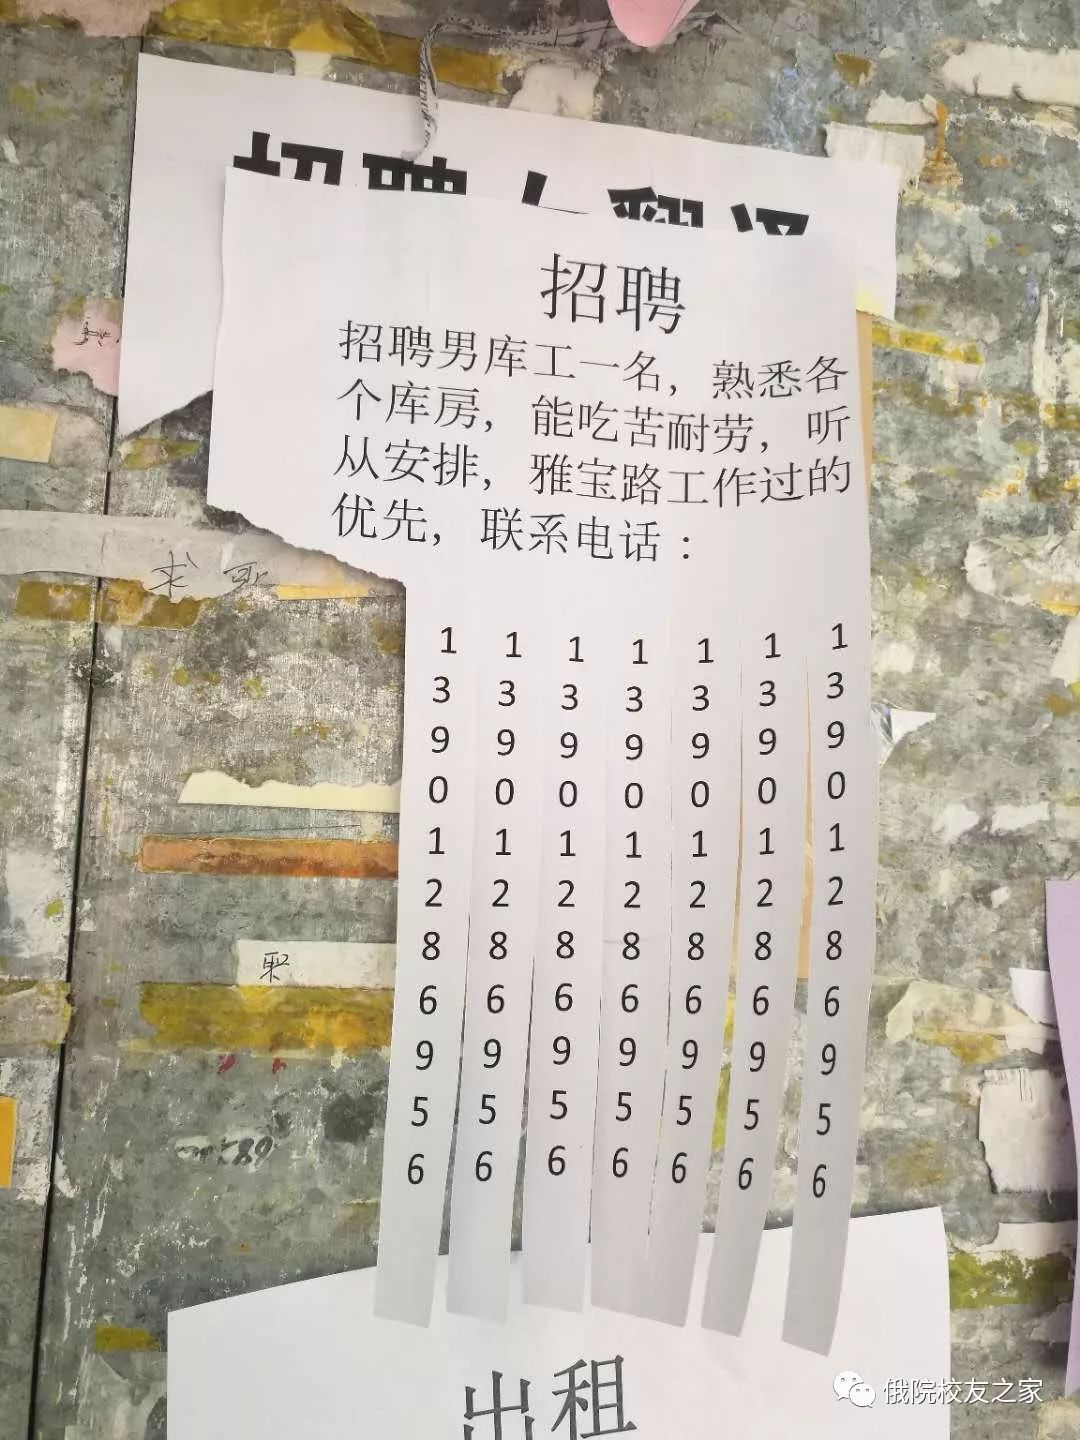 招聘
招聘男库工一名，熟悉各
个库房，能吃苦耐劳，听
从安排，雅宝路工作过的
优先，联系电话：
13901286956
13901286956
13901286956
13901286956
13901286956
13901286956
13901286956
求
出租
俄院校友之家